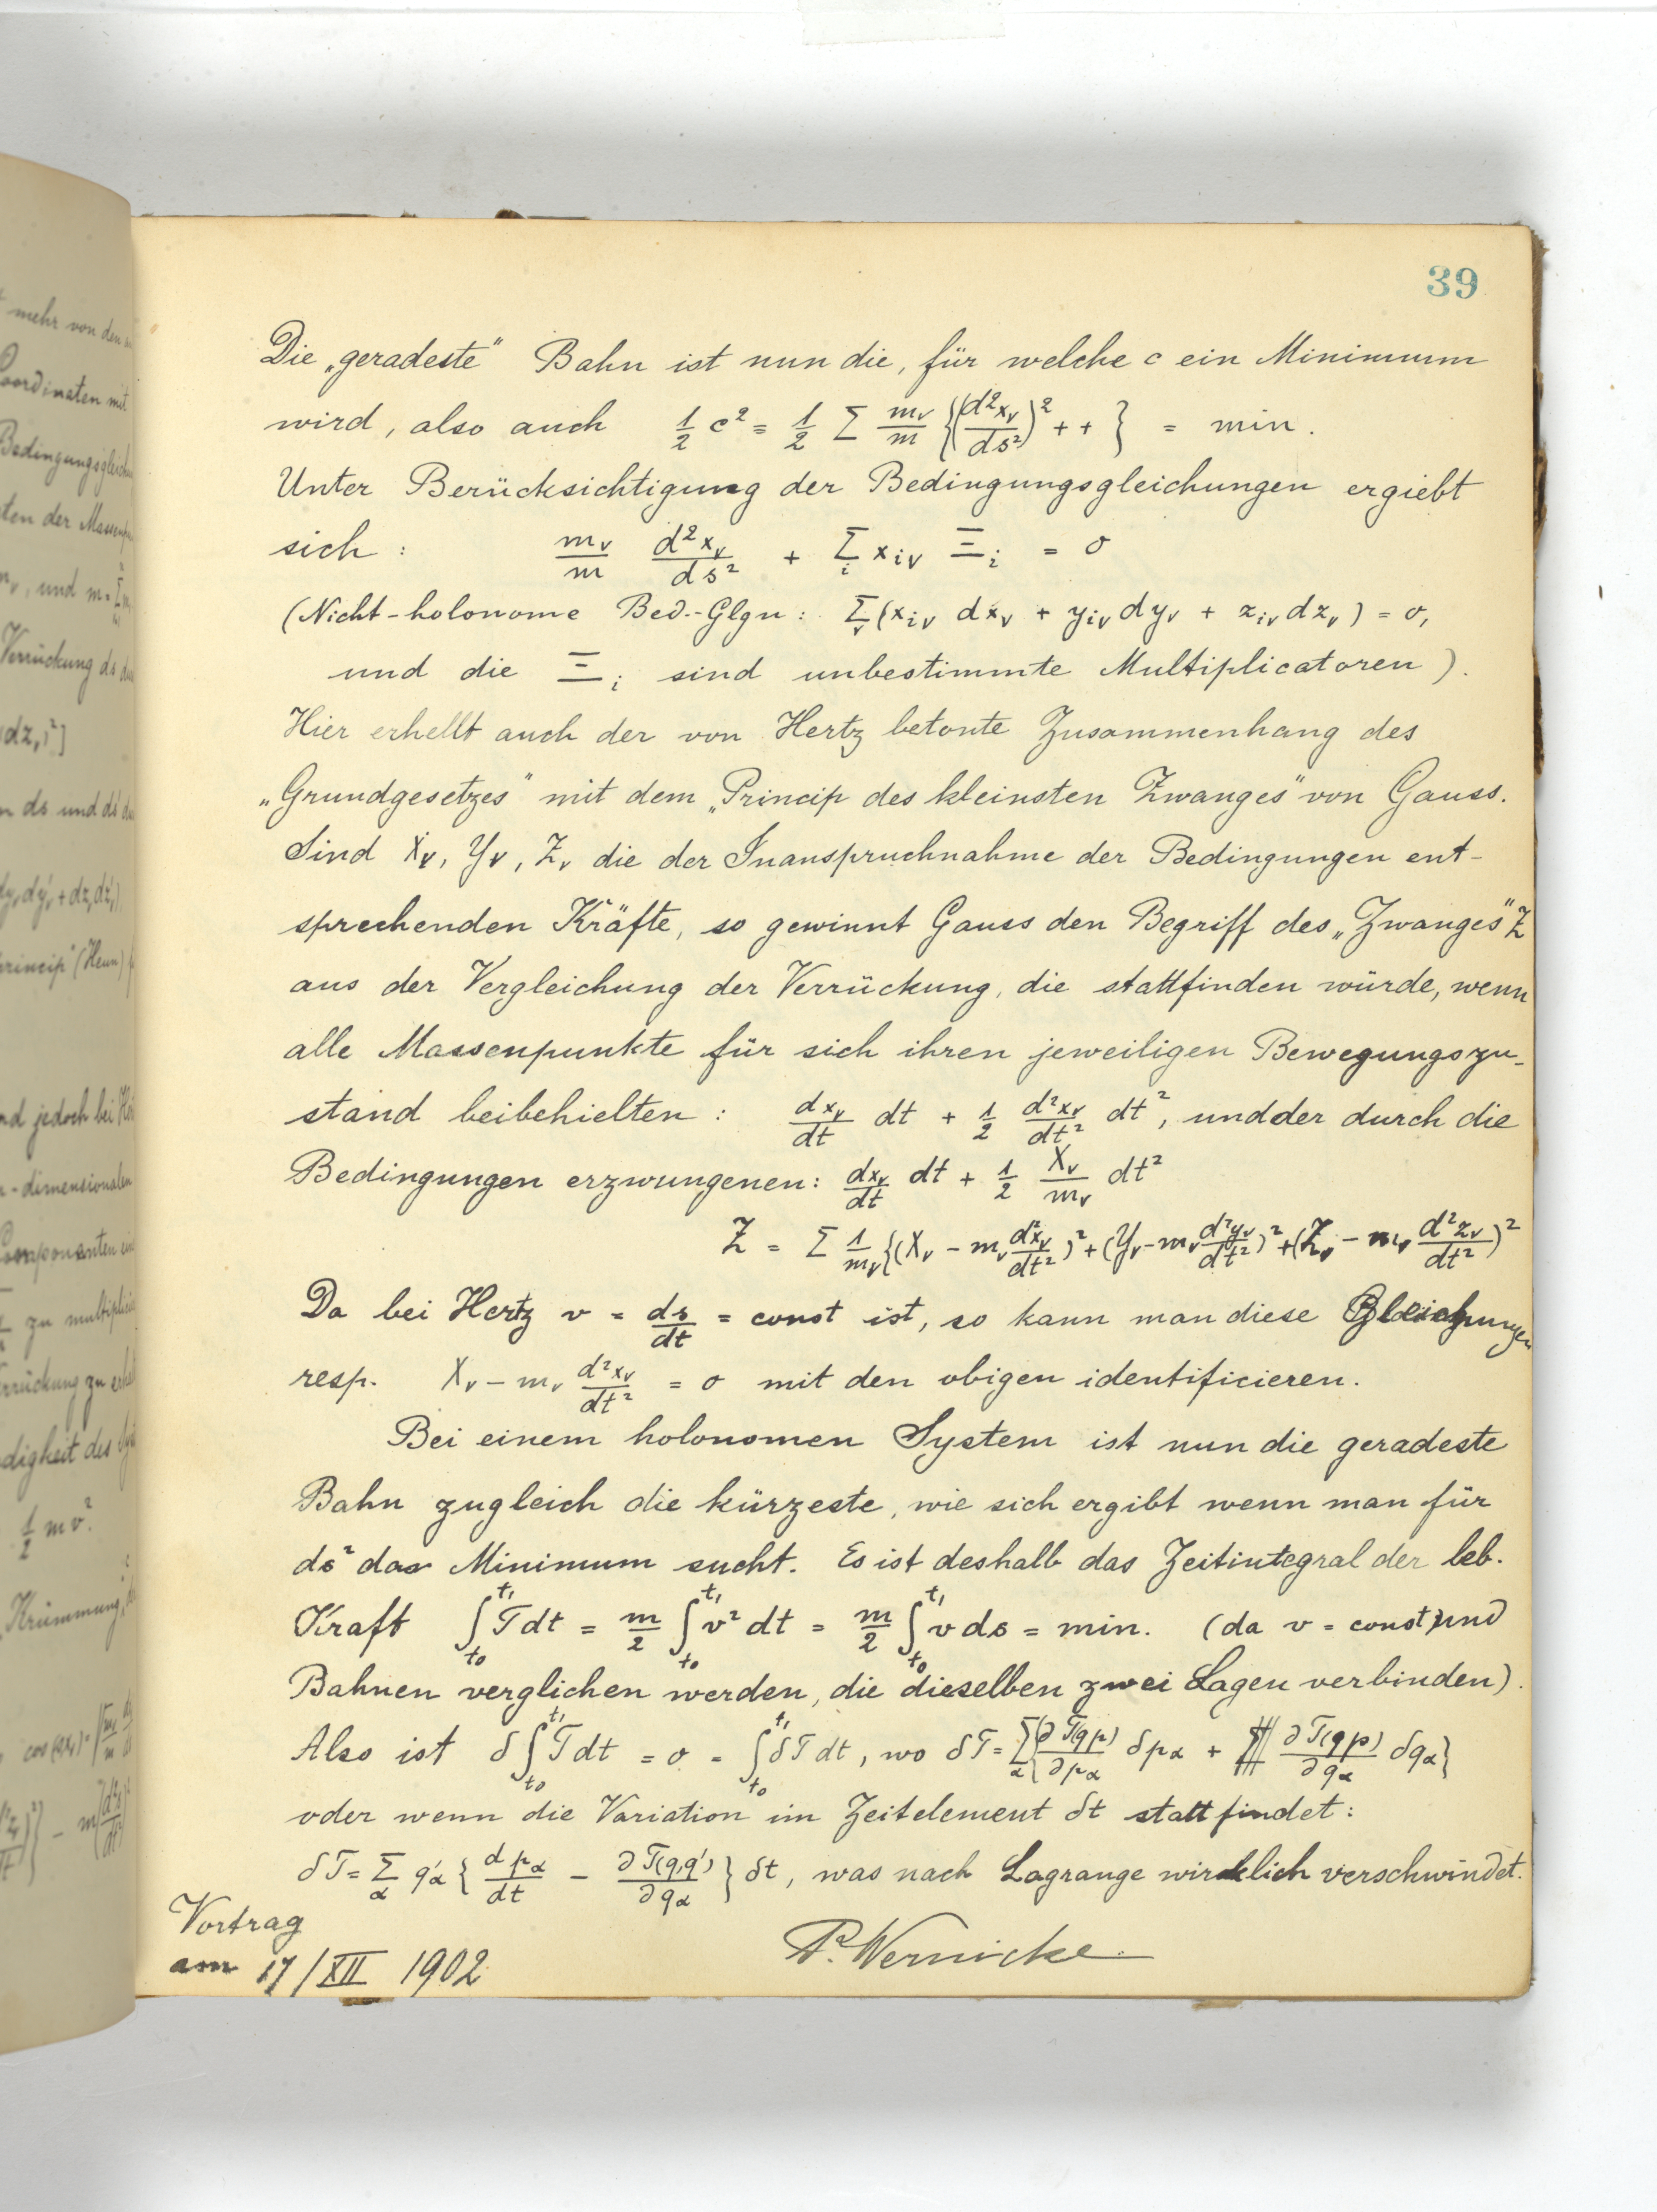 39
Die „geradeste“ Bahn ist nun die, für welche c ein Minimum
wird, also auch ½ c² = ½ Σ m_ν/m {(d²x_ν/ds²)² + + } = min.
Unter Berücksichtigung der Bedingungsgleichungen ergiebt
sich : m_ν/m d²x_ν/ds² + Σ_i x_iν Ξ_i = 0
(Nicht-holonome Bed.-Glgn : Σ_ν (x_iν dx_ν + y_iν dy_ν + z_iν dz_ν) = 0,
und die Ξ_i sind unbestimmte Multiplicatoren).
Hier erhellt auch der von Hertz betonte Zusammenhang des
„Grundgesetzes“ mit dem „Princip des kleinsten Zwanges“ von Gauss.
Sind X_ν, Y_ν, Z_ν die der Inanspruchnahme der Bedingungen ent-
sprechenden Kräfte, so gewinnt Gauss den Begriff des „Zwanges“ Z
aus der Vergleichung der Verrückung, die stattfinden würde, wenn
alle Massenpunkte für sich ihren jeweiligen Bewegungszu-
stand beibehielten : dx_ν/dt dt + ½ d²x_ν/dt² dt², und der durch die
Bedingungen erzwungenen : dx_ν/dt dt + ½ X_ν/m_ν dt²
Z = Σ 1/m_ν {(X_ν - m_ν d²x_ν/dt²)² + (Y_ν - m_ν d²y_ν/dt²)² + (Z_ν - m_ν d²z_ν/dt²)²
Da bei Hertz v = ds/dt = const ist, so kann man diese Gleichungen
resp. X_ν - m_ν d²x_ν/dt² = 0 mit den obigen identificieren.
Bei einem holonomen System ist nun die geradeste
Bahn zugleich die kürzeste, wie sich ergibt wenn man für
ds² das Minimum sucht. Es ist deshalb das Zeitintegral der leb.
Kraft ∫_t₀^t₁ T dt = m/2 ∫_t₀^t₁ v² dt = m/2 ∫_t₀^t₁ v ds = min. (da v = const) und
Bahnen verglichen werden, die dieselben zwei Lagen verbinden).
Also ist δ∫_t₀^t₁ T dt = 0 = ∫_t₀^t₁ δT dt, wo δT = Σ_α {∂T(qp)/∂p_α δp_α + ∂T(qp)/∂q_α δq_α}
oder wenn die Variation im Zeitelement δt stattfindet :
δT = Σ_α q'_α { dp_α/dt - ∂T(q,q')/∂q_α } δt, was nach Lagrange wirklich verschwindet.
Vortrag
am 17/XII 1902
P. Wernicke